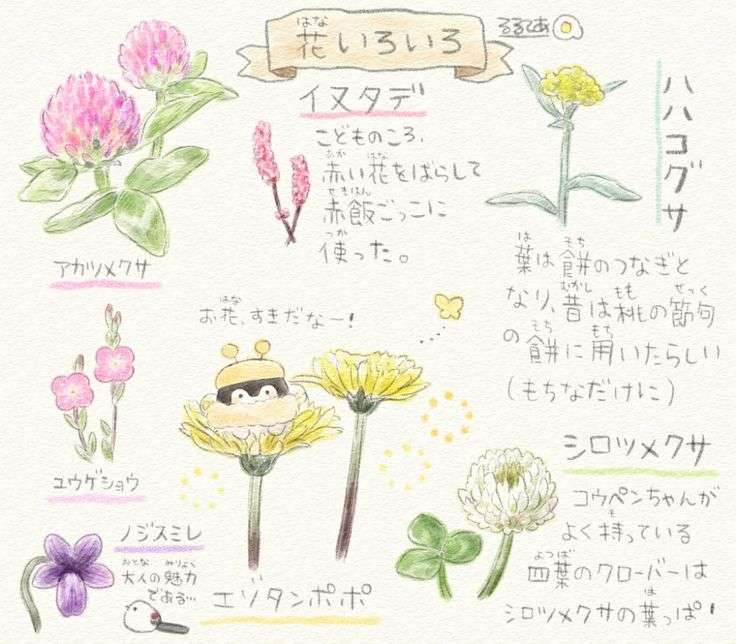 花いろいろ
はな
るるてあ
イヌタデ
こどものころ、
赤い花をばらして
あか はな
赤飯ごっこに
せきはん
使った。
つか
ハハコグサ
葉は餅のつなぎと
は もち
なり、昔は桃の節句
むかし もも せっく
の餅に用いたらしい
もち もち
(もちなだけに)
アカツメクサ
お花、すきだな〜!
はな
ユウゲショウ
シロツメクサ
コウペンちゃんが
よく持っている
も
四葉のクローバーは
よつば
シロツメクサの葉っぱ!
は
ノジスミレ
大人の魅力
おとな みりょく
である…
エゾタンポポ